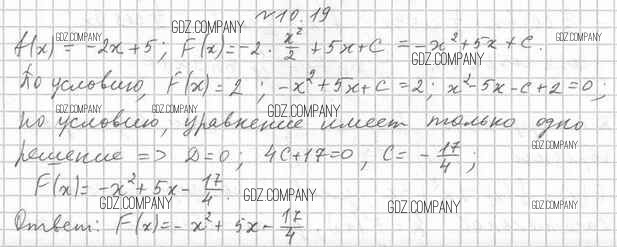 №10.19
f(x) = -2x+5; F(x) = -2 · x²/2 + 5x + C = -x² + 5x + C.
По условию, F(x) = 2; -x² + 5x + C = 2; x² - 5x - C + 2 = 0;
по условию, уравнение имеет только одно
решение => D=0; 4C+17=0, C = -17/4;
F(x) = -x² + 5x - 17/4.
Ответ: F(x) = -x² + 5x - 17/4.
GDZ.COMPANY
GDZ.COMPANY
GDZ.COMPANY
GDZ.COMPANY
GDZ.COMPANY
GDZ.COMPANY
GDZ.COMPANY
GDZ.COMPANY
GDZ.COMPANY
GDZ.COMPANY
GDZ.COMPANY
GDZ.COMPANY